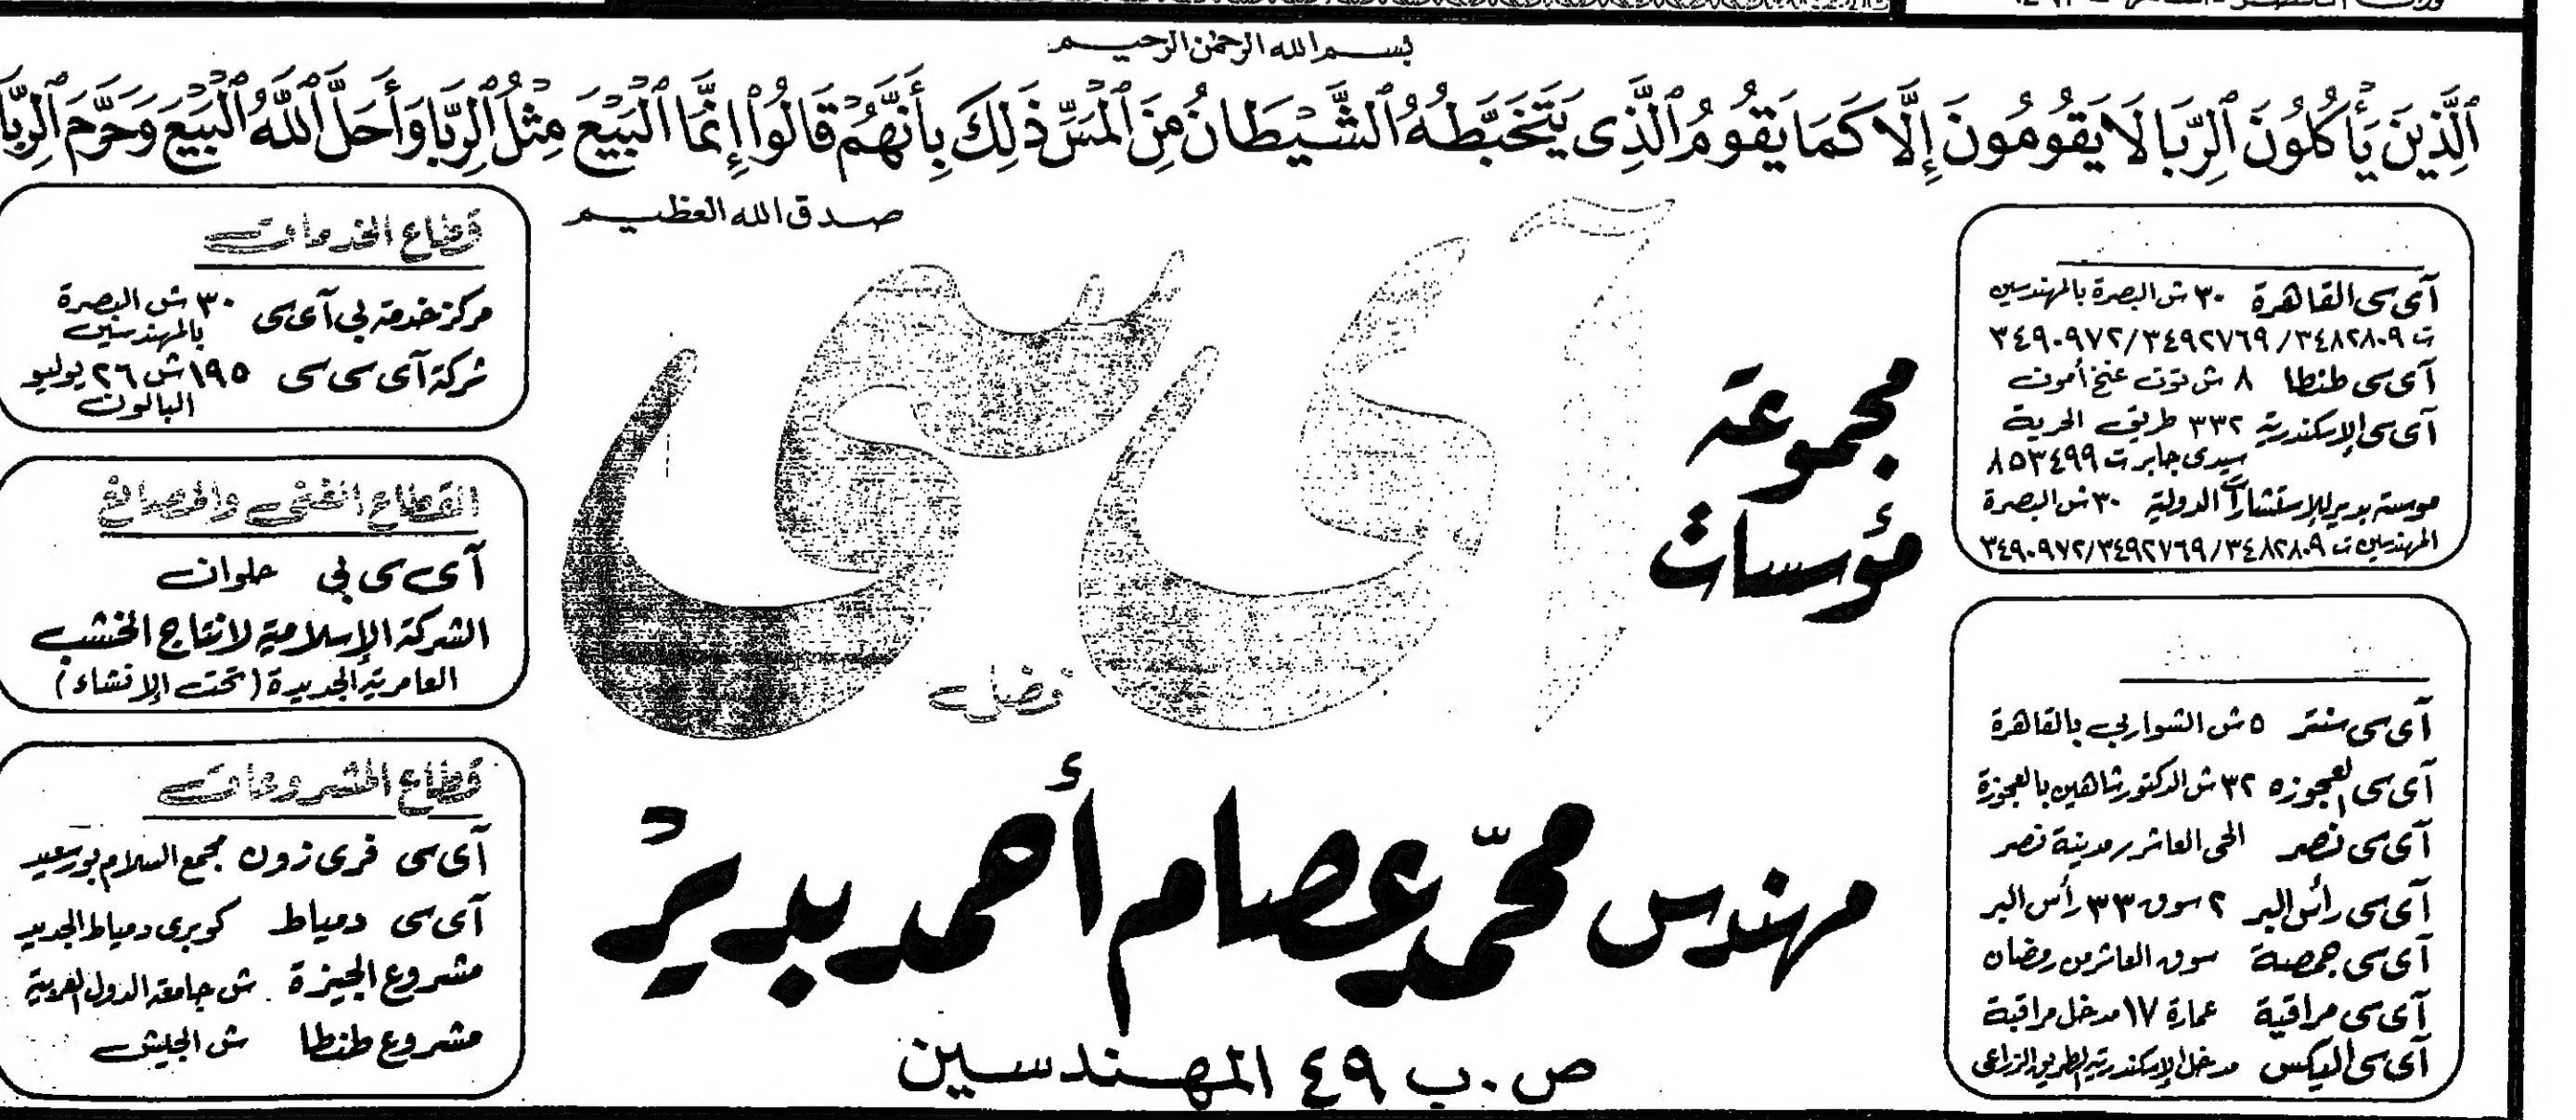 بسم الله الرحمن الرحيم
ٱلَّذِينَ يَأْكُلُونَ ٱلرِّبَا لَا يَقُومُونَ إِلَّا كَمَا يَقُومُ ٱلَّذِى يَتَخَبَّطُهُ ٱلشَّيْطَانُ مِنَ ٱلْمَسِّ ذَٰلِكَ بِأَنَّهُمْ قَالُوٓا۟ إِنَّمَا ٱلْبَيْعُ مِثْلُ ٱلرِّبَا وَأَحَلَّ ٱللَّهُ ٱلْبَيْعَ وَحَرَّمَ ٱلرِّبَا
صدق الله العظيم
آى سى القاهرة ٣٠ ش البصرة بالمهندسين
ت ٣٤٨٢٨٠٩/٣٤٩٢٧٦٩/٣٤٩٠٩٧٢
آى سى طنطا ٨ ش توت عنخ أمون
آى سى الإسكندرية ٣٣٢ طريق الحرية
سيدى جابر ت ٨٥٣٤٩٩
موسسة بدير للإستشارات الدولية ٣٠ ش البصرة
المهندسين ت ٣٤٨٢٨٠٩/٣٤٩٢٧٦٩/٣٤٩٠٩٧٢
آى سى سنتر ٥ ش الشواربى بالقاهرة
آى سى العجوزه ٣٢ ش الدكتور شاهين بالعجوزة
آى سى نصر الحى العاشر مدينة نصر
آى سى رأس البر ٢ سوق ٣٣ رأس البر
آى سى جمصة سوق العاشر من رمضان
آى سى مراقية عمارة ١٧ مدخل مراقية
آى سى الـيكس مدخل الإسكندرية الطريق الزراعى
مجموعة
مؤسسات
آى سى
فضل
مهندس محمّد عصام أحمد بدير
ص.ب ٤٩ المهندسين
قطاع الخدمات
مركز خدمة بى آى سى ٣٠ ش البصرة
بالمهندسين
شركة آى سى سى ١٩٥ ش ٢٦ يوليو
البالون
القطاع الفنى والمصانع
آى سى بى حلوان
الشركة الإسلامية لانتاج الخشب
العامرية الجديدة (تحت الإنشاء)
قطاع المشروعات
آى سى فرى زون مجمع السلام بورسعيد
آى سى دمياط كوبرى دمياط الجديد
مشروع الجيزة ش جامعة الدول العربية
مشروع طنطا ش الجيش